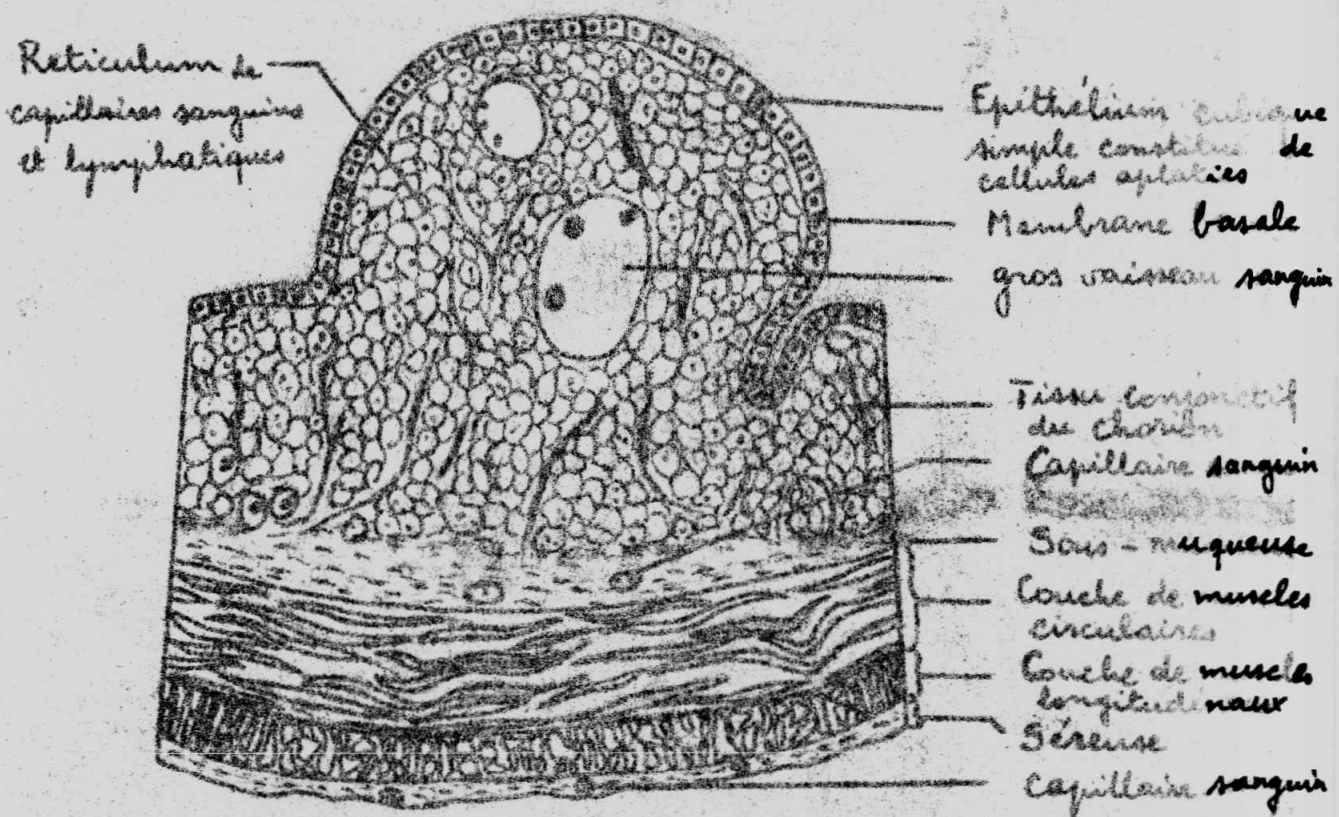 Reticulum de
capillaires sanguins
et lymphatiques
Epithélium cubique
simple constitué de
cellules aplaties
Membrane basale
gros vaisseau sanguin
Tissu conjonctif
du chorion
Capillaire sanguin
Sous-muqueuse
Couche de muscles
circulaires
Couche de muscles
longitudinaux
Séreuse
Capillaire sanguin